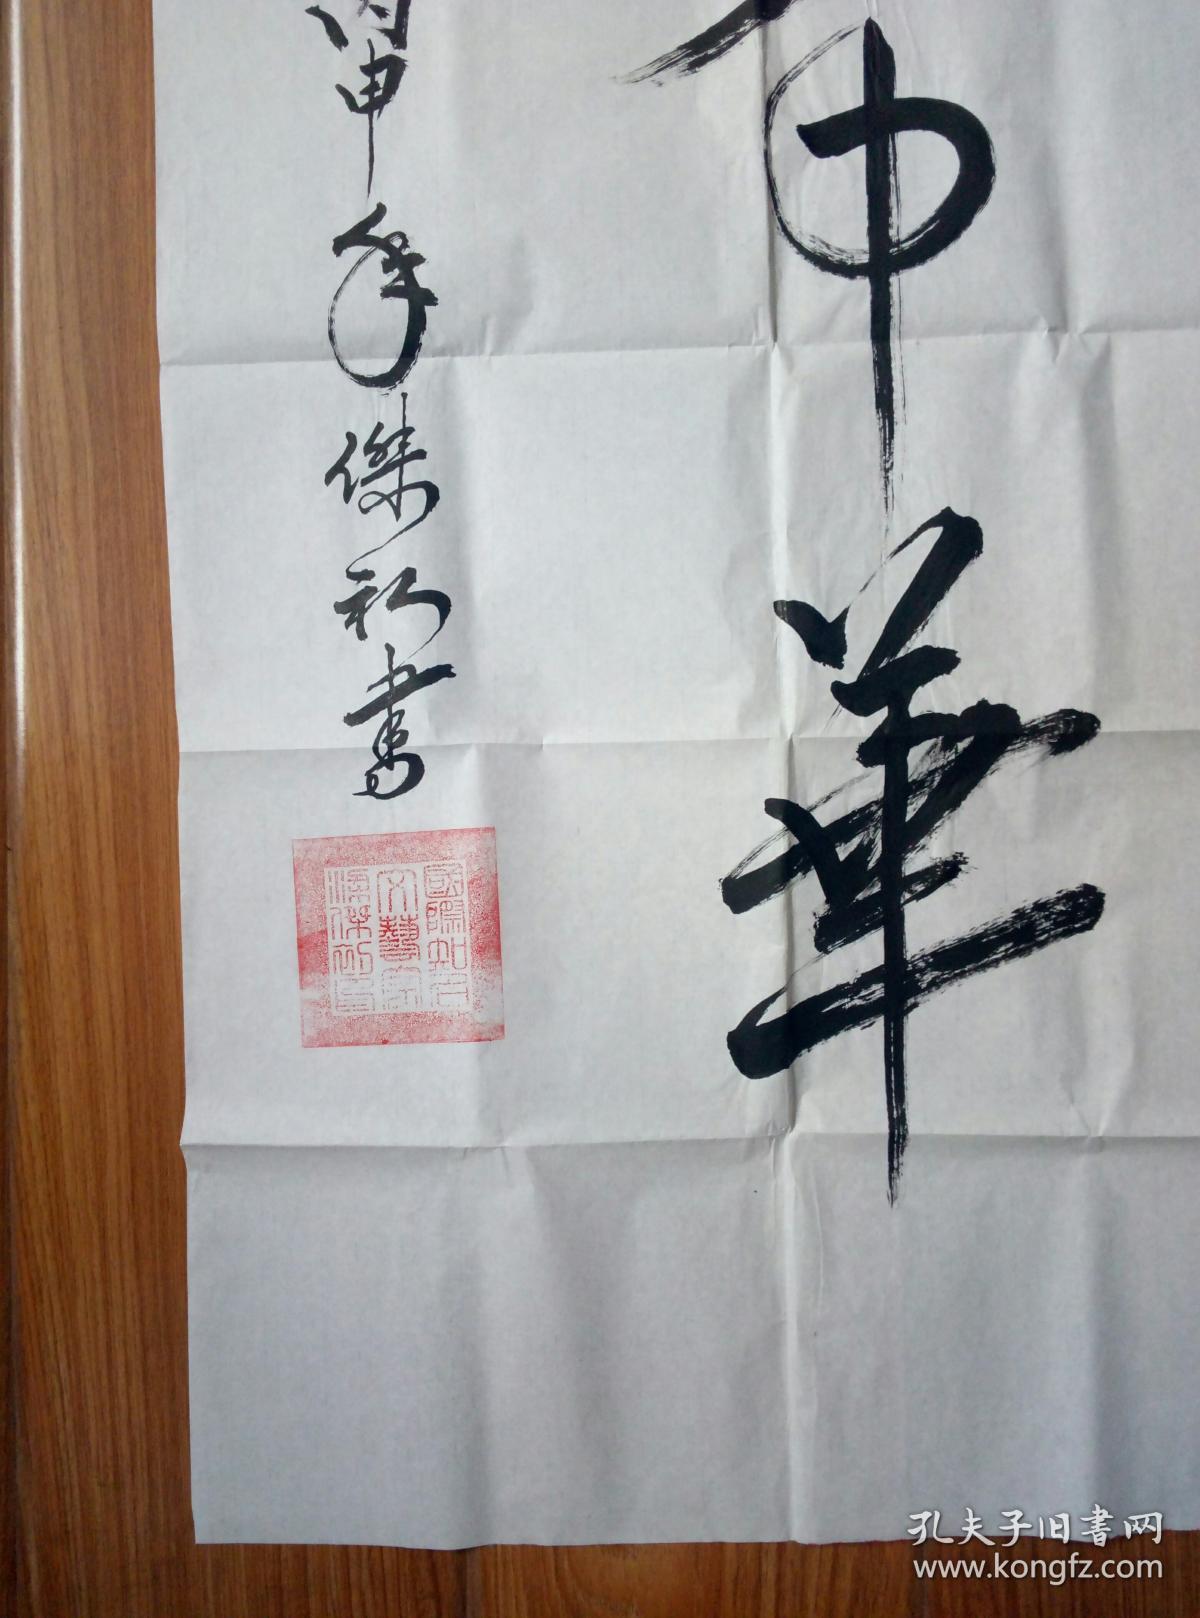 華
丙申年傑初書
國際知名
文藝家
傑初印
孔夫子旧書网
www.kongfz.com